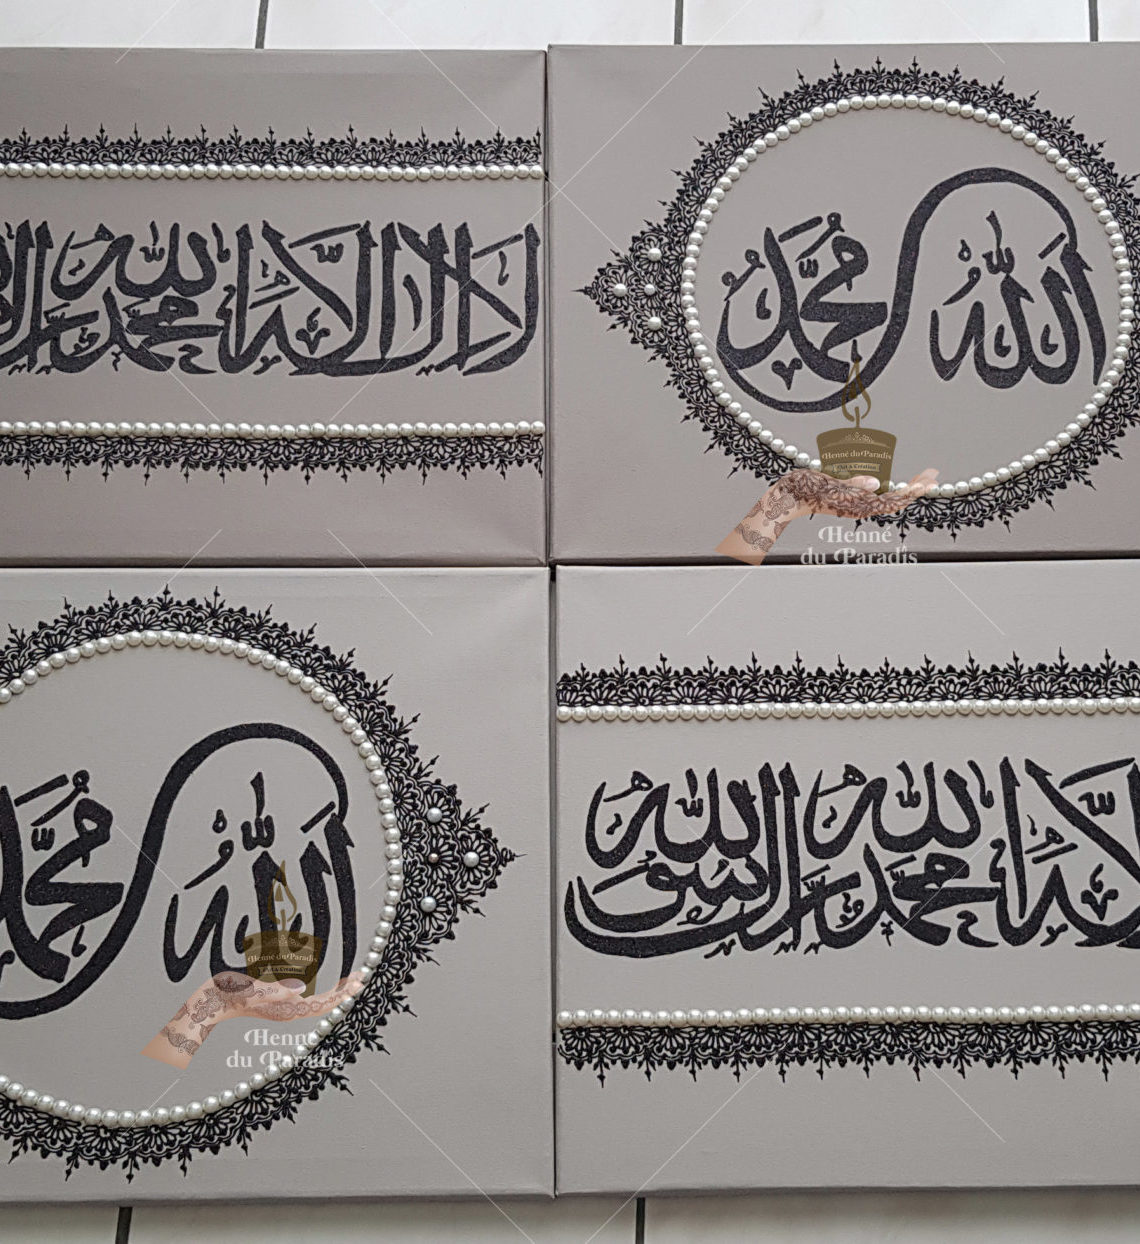 لا إله إلا الله محمد
الله
محمد
Henné du Paradis
Art & Création
Henné
du Paradis
الله
محمد
Henné du Paradis
Art & Création
Henné
du Paradis
إلا الله محمد رسول الله